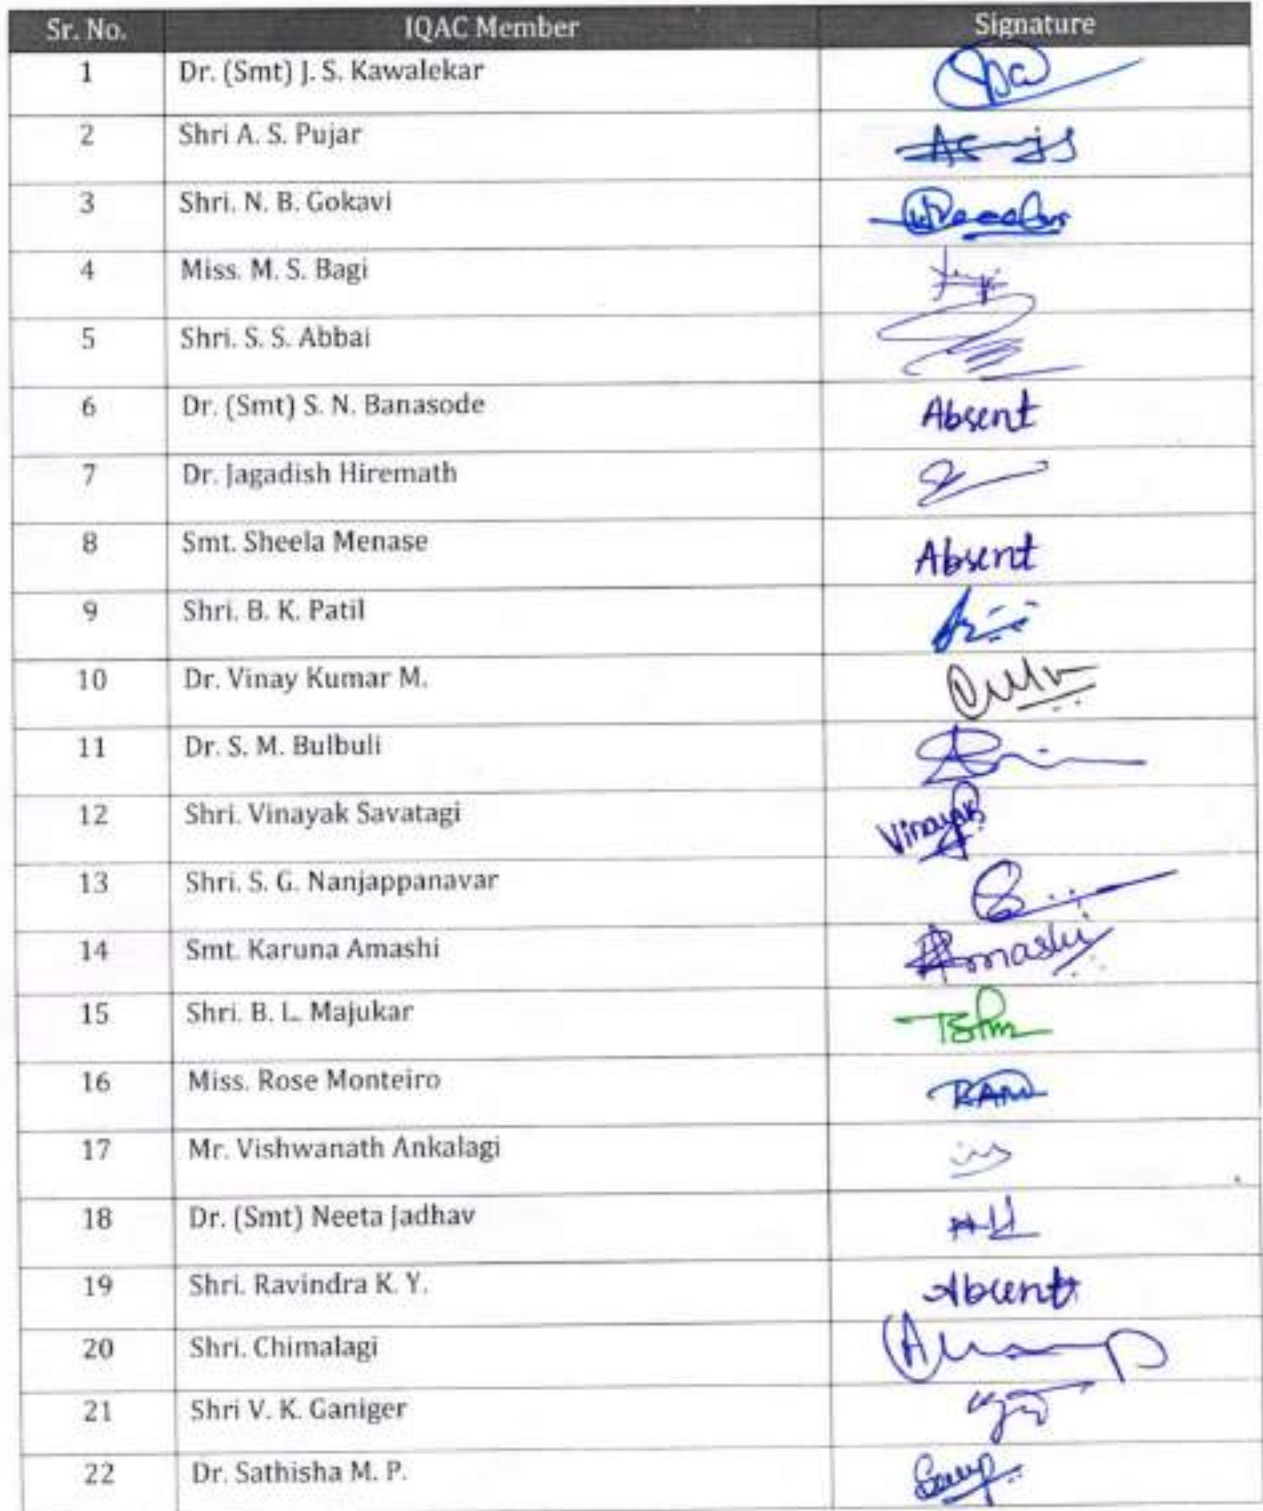 Sr. No. IQAC Member Signature
1 Dr. (Smt) J. S. Kawalekar
2 Shri A. S. Pujar
3 Shri. N. B. Gokavi
4 Miss. M. S. Bagi
5 Shri. S. S. Abbai
6 Dr. (Smt) S. N. Banasode Absent
7 Dr. Jagadish Hiremath
8 Smt. Sheela Menase Absent
9 Shri. B. K. Patil
10 Dr. Vinay Kumar M.
11 Dr. S. M. Bulbuli
12 Shri. Vinayak Savatagi Vinayak
13 Shri. S. G. Nanjappanavar
14 Smt. Karuna Amashi
15 Shri. B. L. Majukar
16 Miss. Rose Monteiro
17 Mr. Vishwanath Ankalagi
18 Dr. (Smt) Neeta Jadhav
19 Shri. Ravindra K. Y. Absent
20 Shri. Chimalagi
21 Shri V. K. Ganiger
22 Dr. Sathisha M. P.